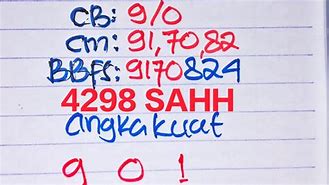 CB: 9/0
cm: 91,70,82
BBFS: 9170824
4298 SAHH
angka kuat
9 0 1